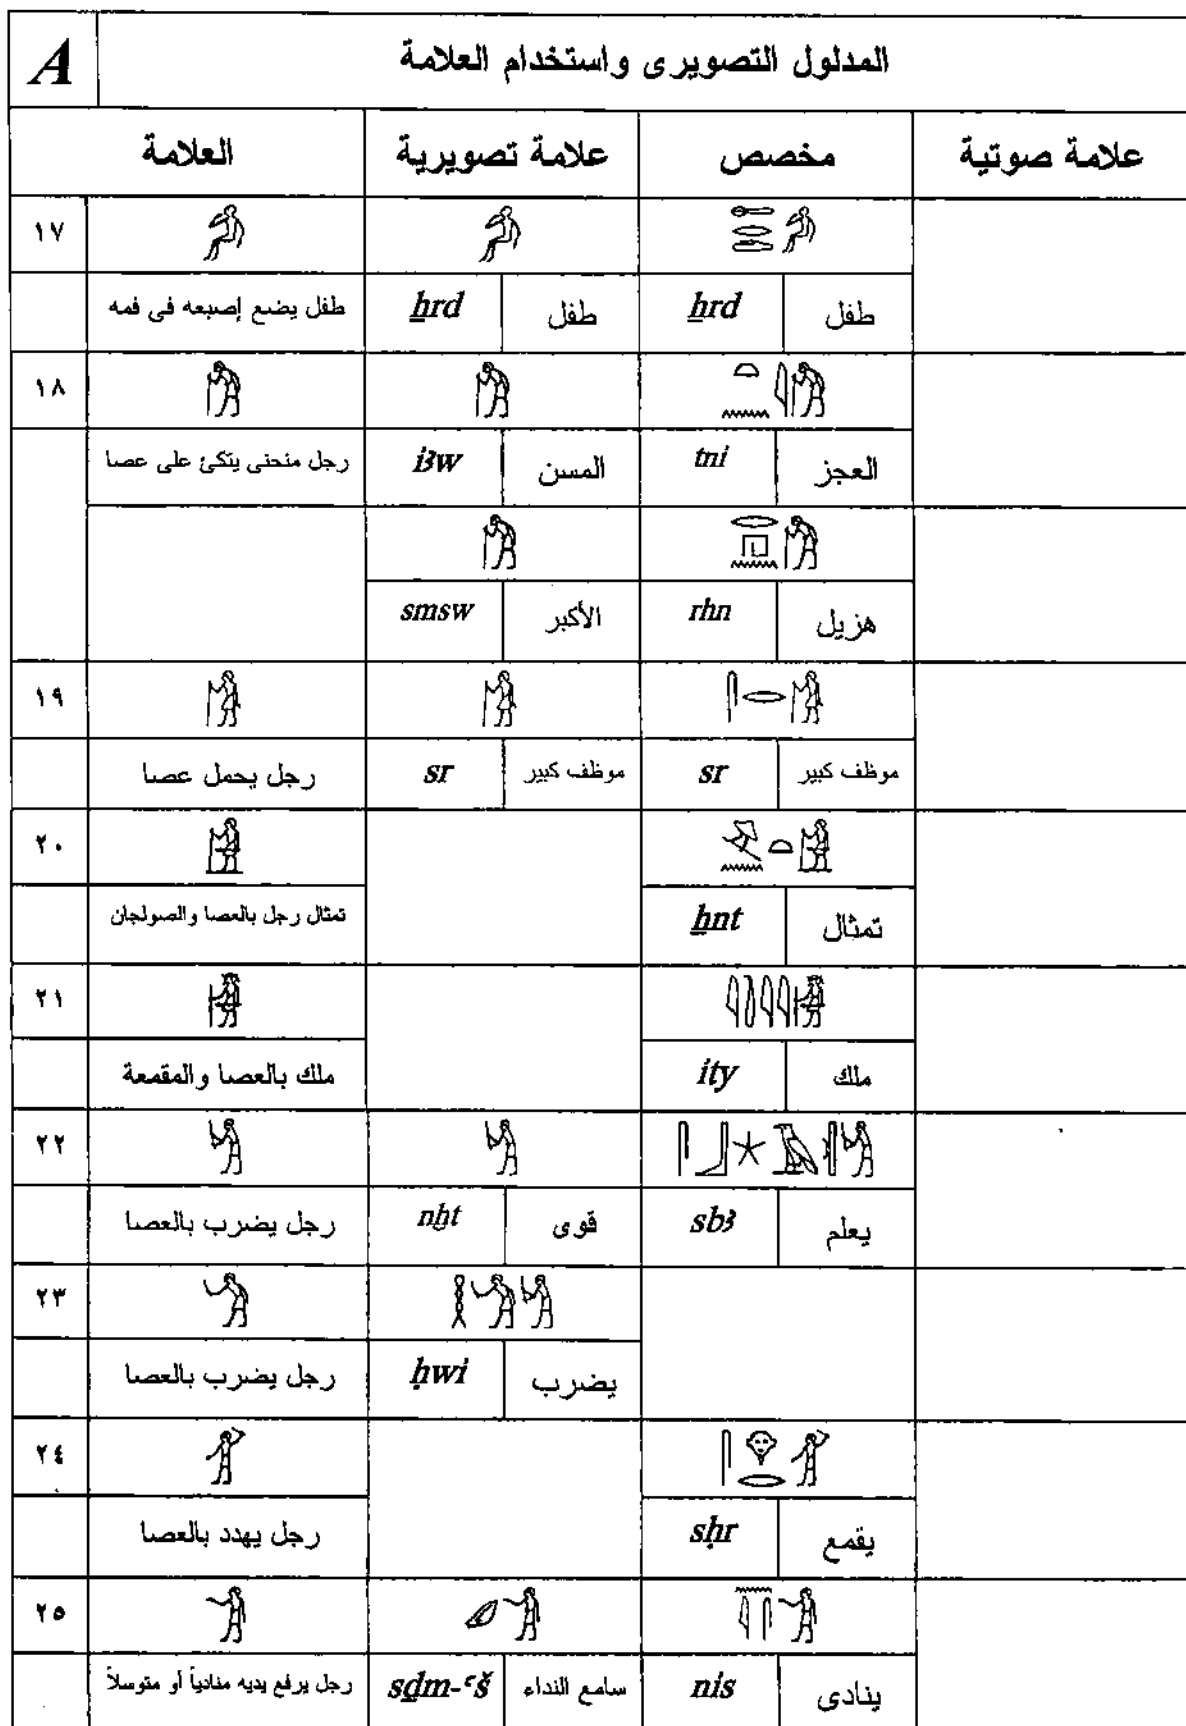 A المدلول التصويرى واستخدام العلامة
العلامة علامة تصويرية مخصص علامة صوتية
١٧
طفل يضع إصبعه فى فمه ẖrd طفل ẖrd طفل
١٨
رجل منحنى يتكئ على عصا iꜣw المسن tni العجز
smsw الأكبر rhn هزيل
١٩
رجل يحمل عصا sr موظف كبير sr موظف كبير
٢٠
تمثال رجل بالعصا والصولجان ẖnt تمثال
٢١
ملك بالعصا والمقمعة ity ملك
٢٢
رجل يضرب بالعصا nẖt قوى sbꜣ يعلم
٢٣
رجل يضرب بالعصا ḥwi يضرب
٢٤
رجل يهدد بالعصا sḥr يقمع
٢٥
رجل يرفع يديه منادياً أو متوسلاً sḏm-ꜥš سامع النداء nis ينادى